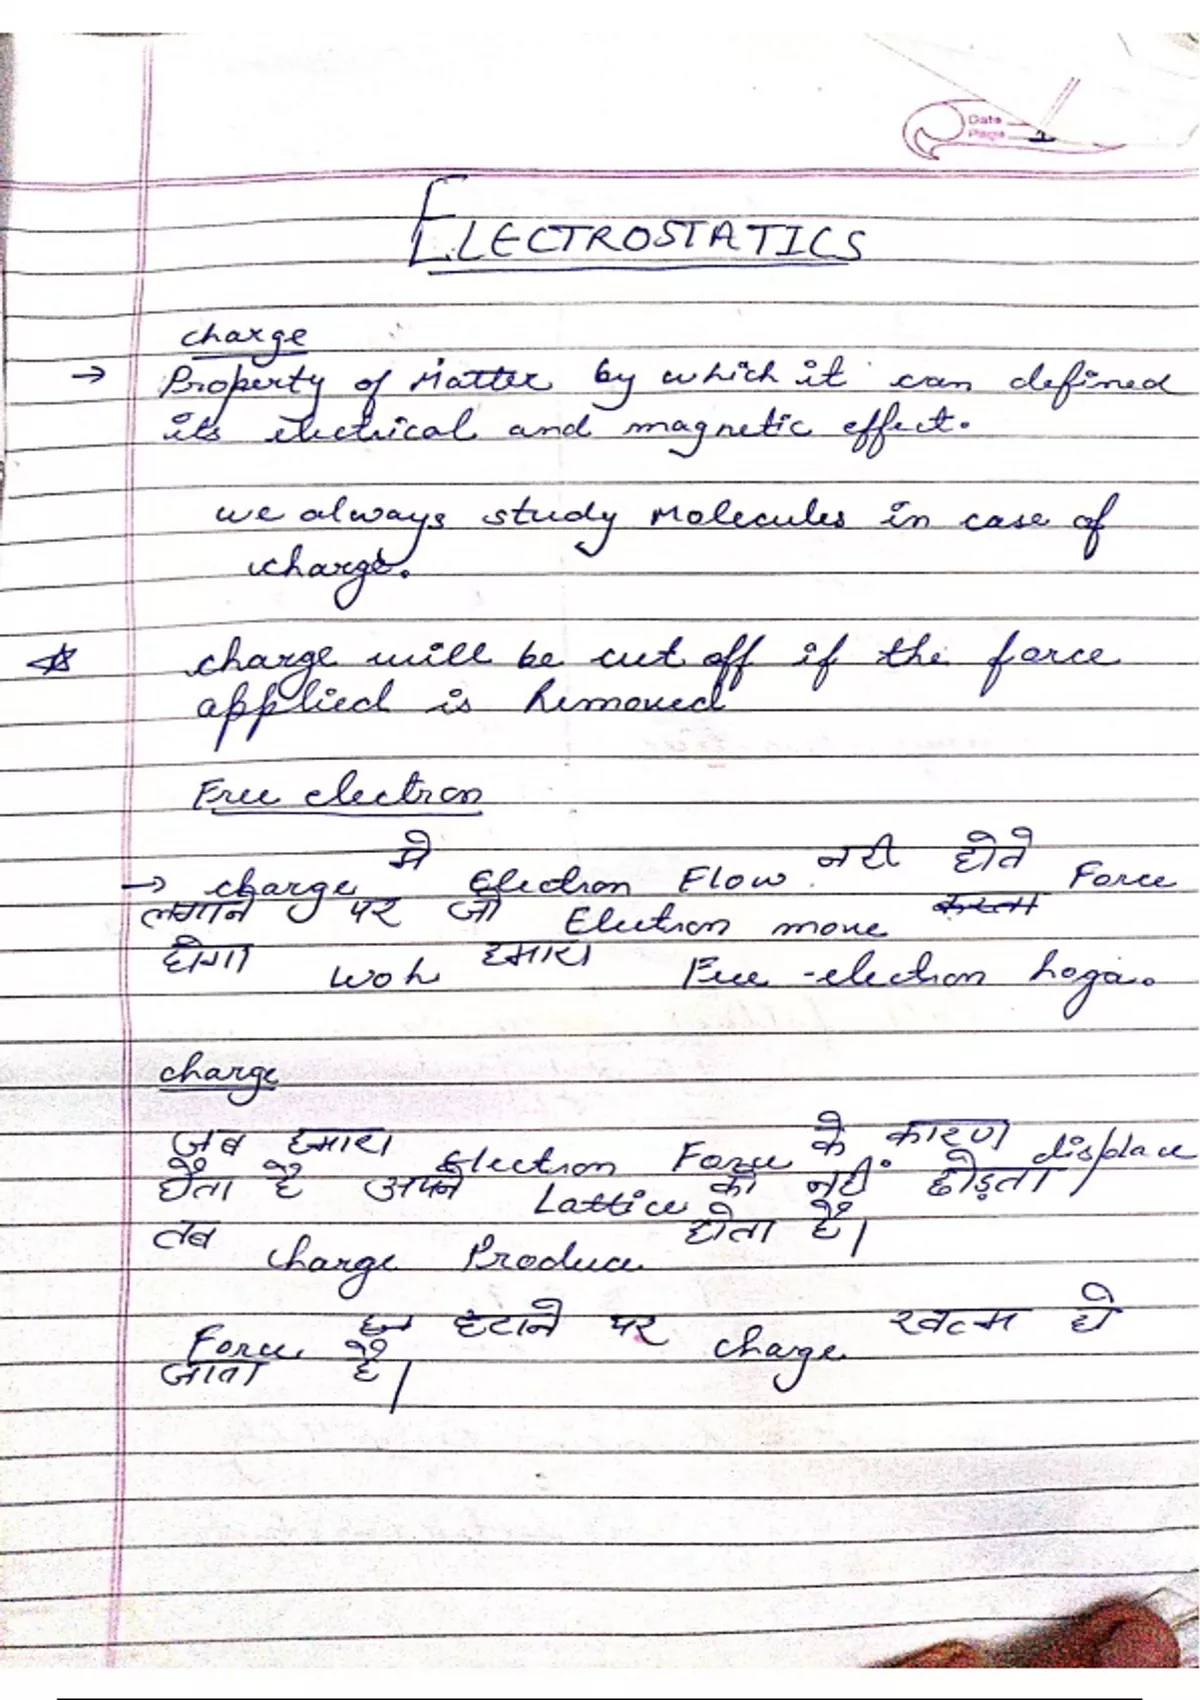 Date
Page 1
ELECTROSTATICS
charge
→ Property of Matter by which it can defined
its electrical and magnetic effect.
we always study Molecules in case of
charge.
☆ charge will be cut off if the force
applied is Removed
Free electron
→ charge मे Electron Flow नही होते Force
लगाने पर जो Electron move करता
होगा woh हमारा Free-electron hoga.
charge
जब हमारा Electron Force के कारण displace
होता है अपने Lattice को नहीं छोड़ता
तब charge Produce होता है।
Force हटाने पर charge खत्म हो
जाता है।